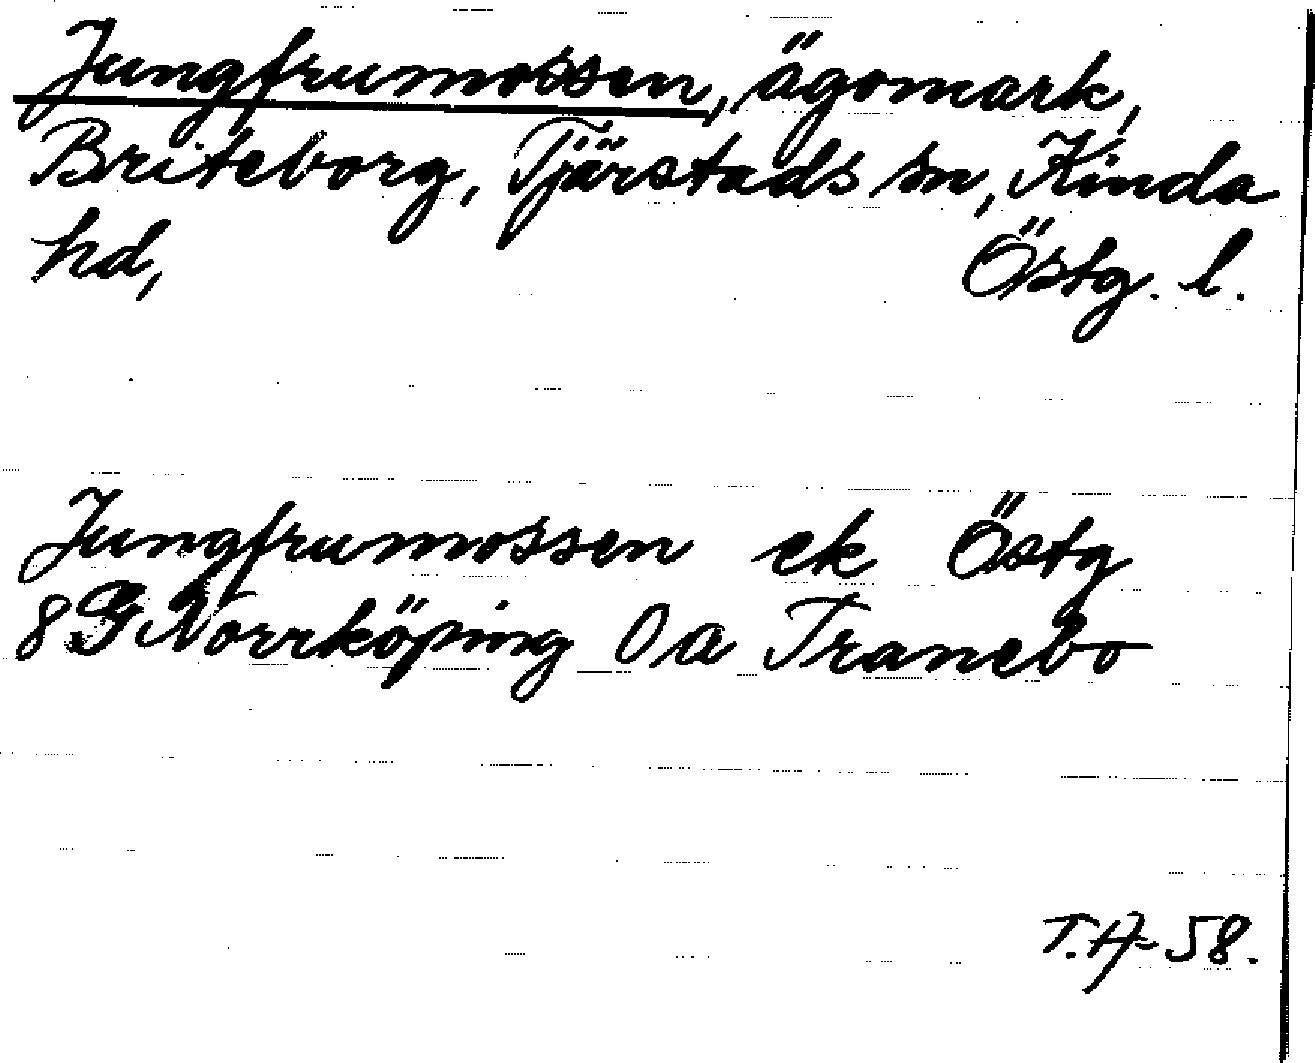 Jungfrumossen, ägomark,
Briteborg, Tjärstads sn, Kinda
hd, Östg. l.
Jungfrumossen ek Östg
8G Norrköping 0a Tranebo
T.A-58.